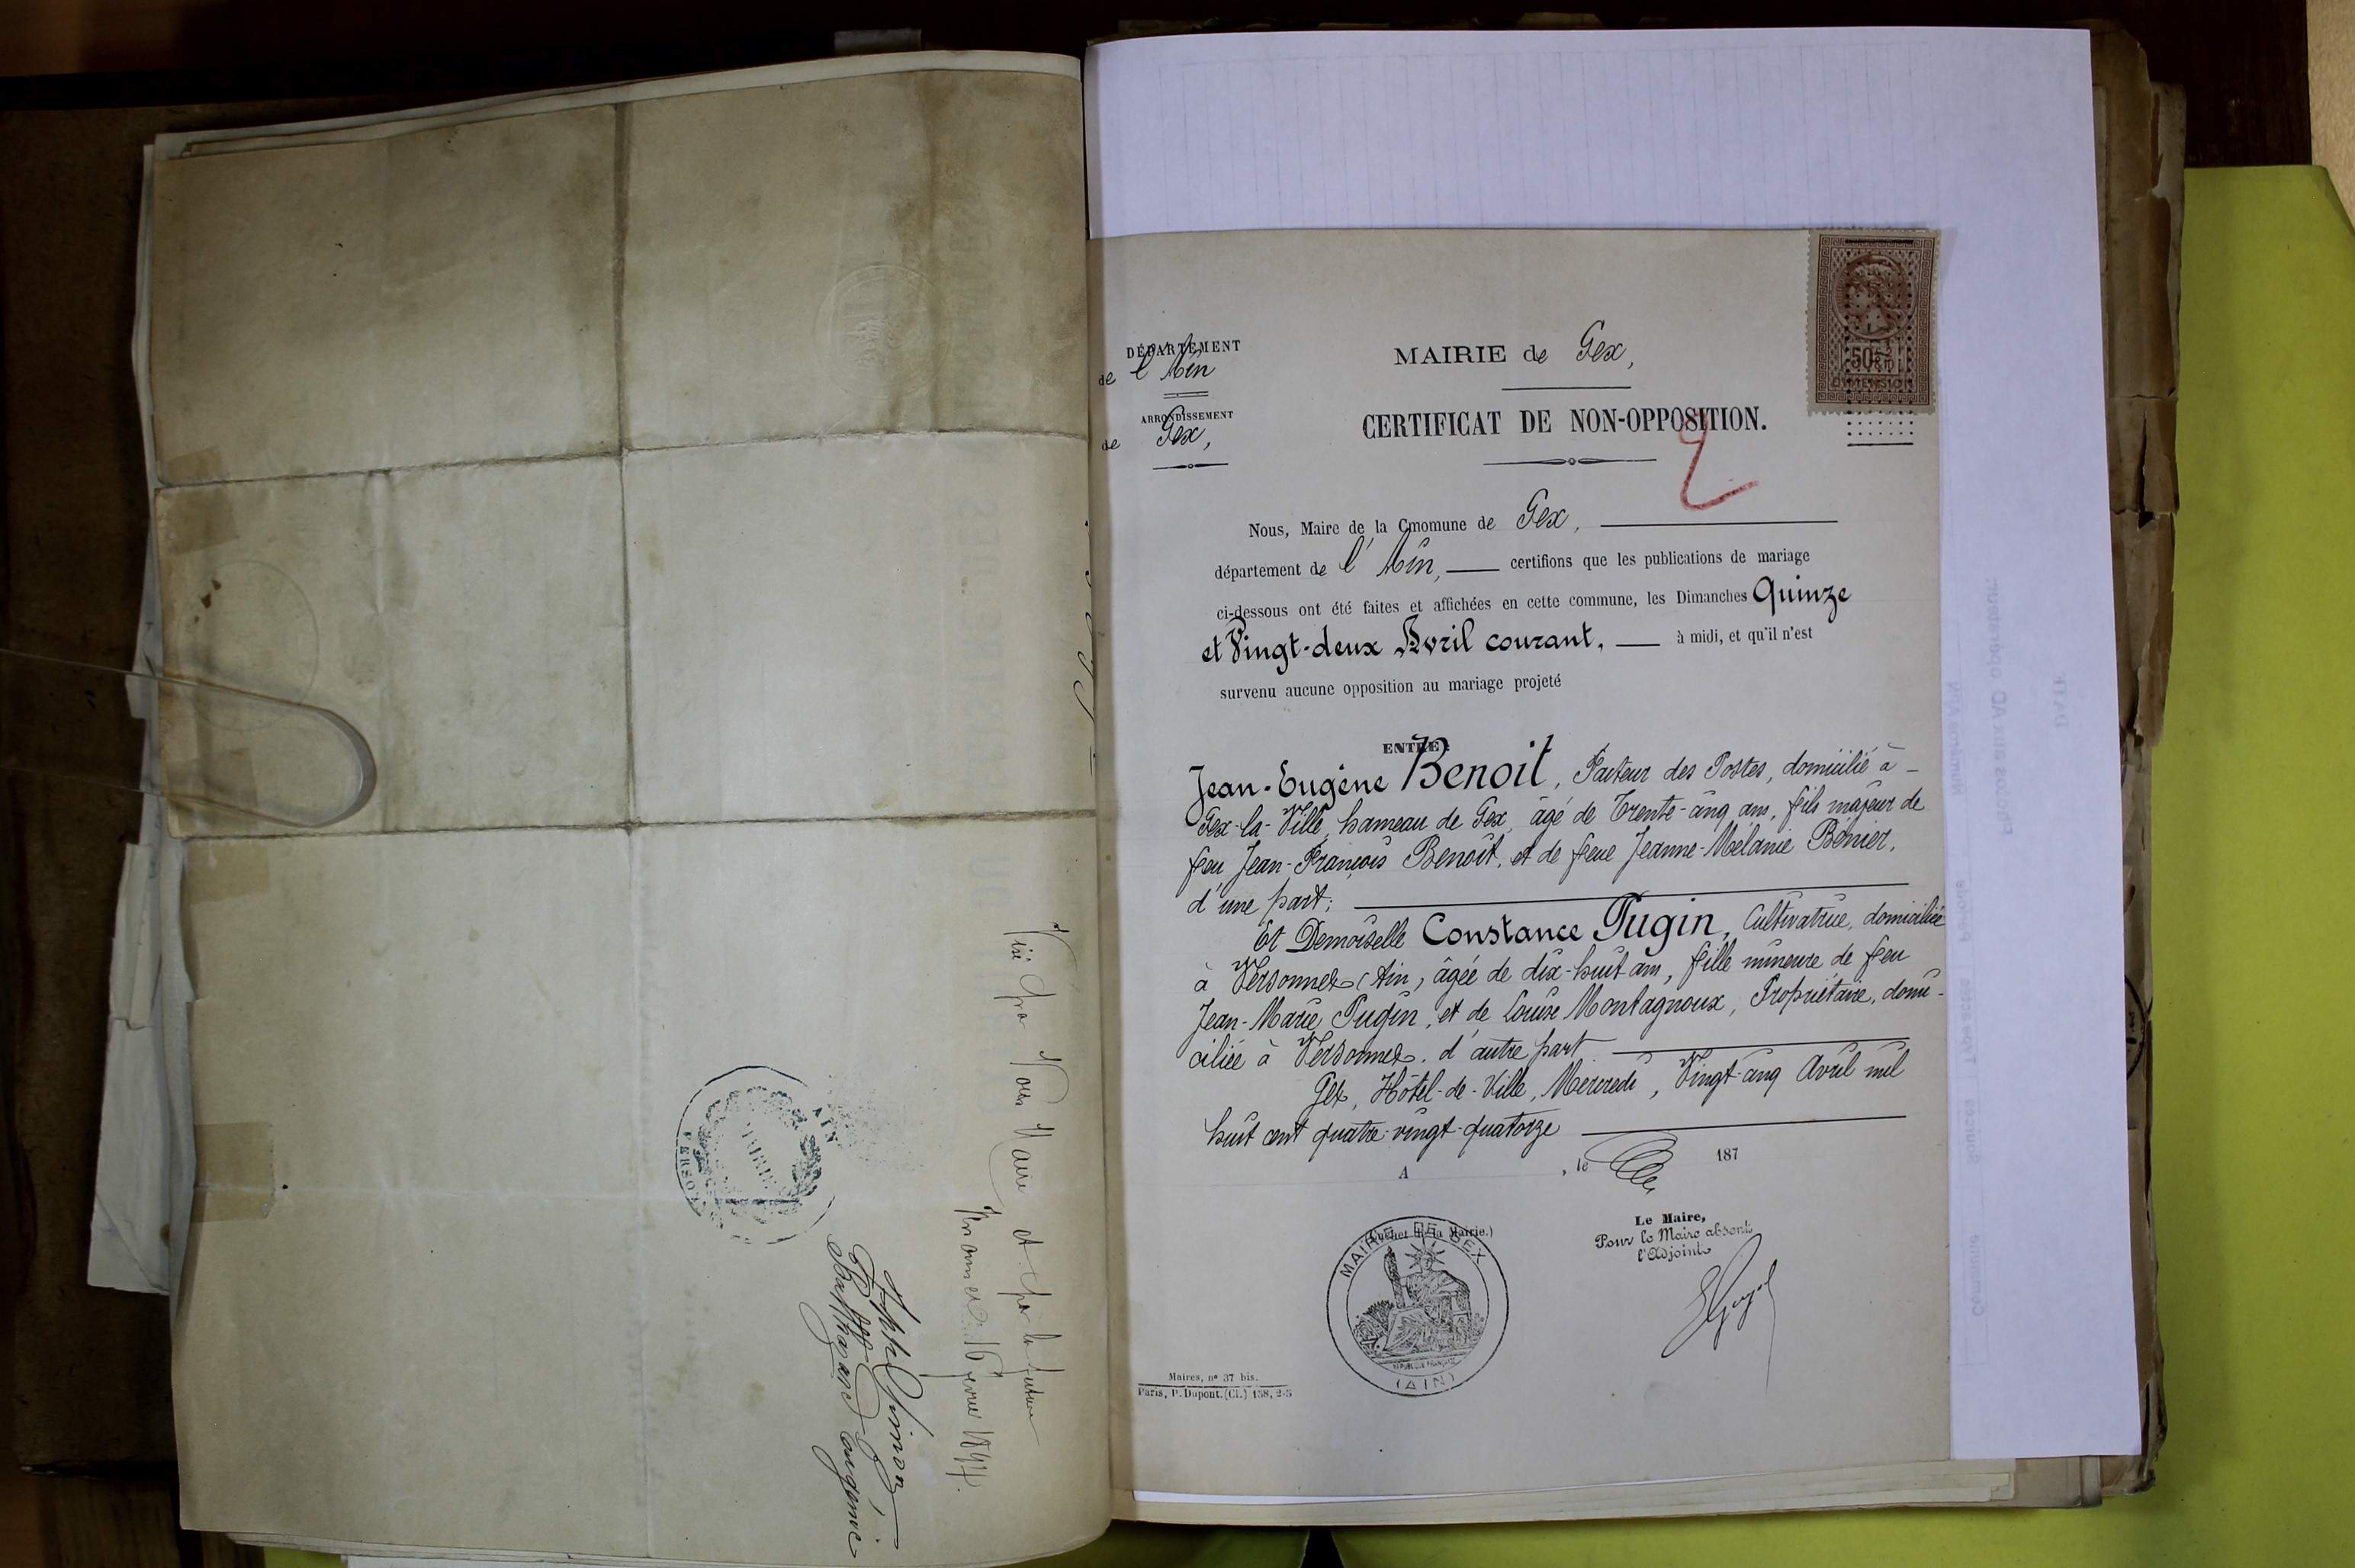 Visé par Nous Maire et par la future
Versonnex 16 1894.
MAIRIE
VERSO
DÉPARTEMENT
de l'Ain
ARRONDISSEMENT
de Gex,
MAIRIE de Gex,
CERTIFICAT DE NON-OPPOSITION.
2
Nous, Maire de la Cmomune de Gex,
département de l'Ain, certifions que les publications de mariage
ci-dessous ont été faites et affichées en cette commune, les Dimanches Quinze
et Vingt-deux Avril courant, à midi, et qu'il n'est
survenu aucune opposition au mariage projeté
ENTRE:
Jean-Eugène Benoit, Facteur des Postes, domicilié à
Gex-la-Ville, hameau de Gex, âgé de Trente-cinq ans, fils majeur de
feu Jean-François Benoit, et de feue Jeanne-Mélanie Bénier,
d'une part;
Et Demoiselle Constance Pugin, Cultivatrice, domiciliée
à Versonnex (Ain, âgée de dix-huit ans, fille mineure de feu
Jean-Marie Pugin, et de Louise Montagnoux, Propriétaire, domi-
ciliée à Versonnex, d'autre part
Gex, Hôtel-de-Ville, Mercredi, Vingt-cinq Avril mil
huit cent quatre-vingt-quatorze
A , le 187
(Cachet de la Mairie.)
MAIRIE DE GEX
RÉPUBLIQUE FRANÇAISE
(AIN)
Le Maire,
Pour le Maire absent
l'Adjoint
Maires, n° 37 bis.
Paris, P. Dupont. (Cl.) 158, 2-5